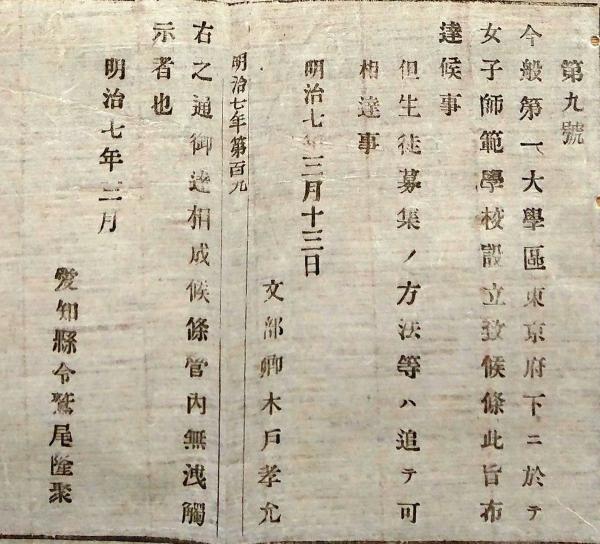 第九號
今般第一大學區東京府下ニ於テ
女子師範學校設立致候條此旨布
達候事
但生徒募集ノ方法等ハ追テ可
相達事
明治七年三月十三日
文部卿木戸孝允
明治七年第百九
右之通御達相成候條管內無洩觸
示者也
明治七年三月
愛知縣令鷲尾隆聚